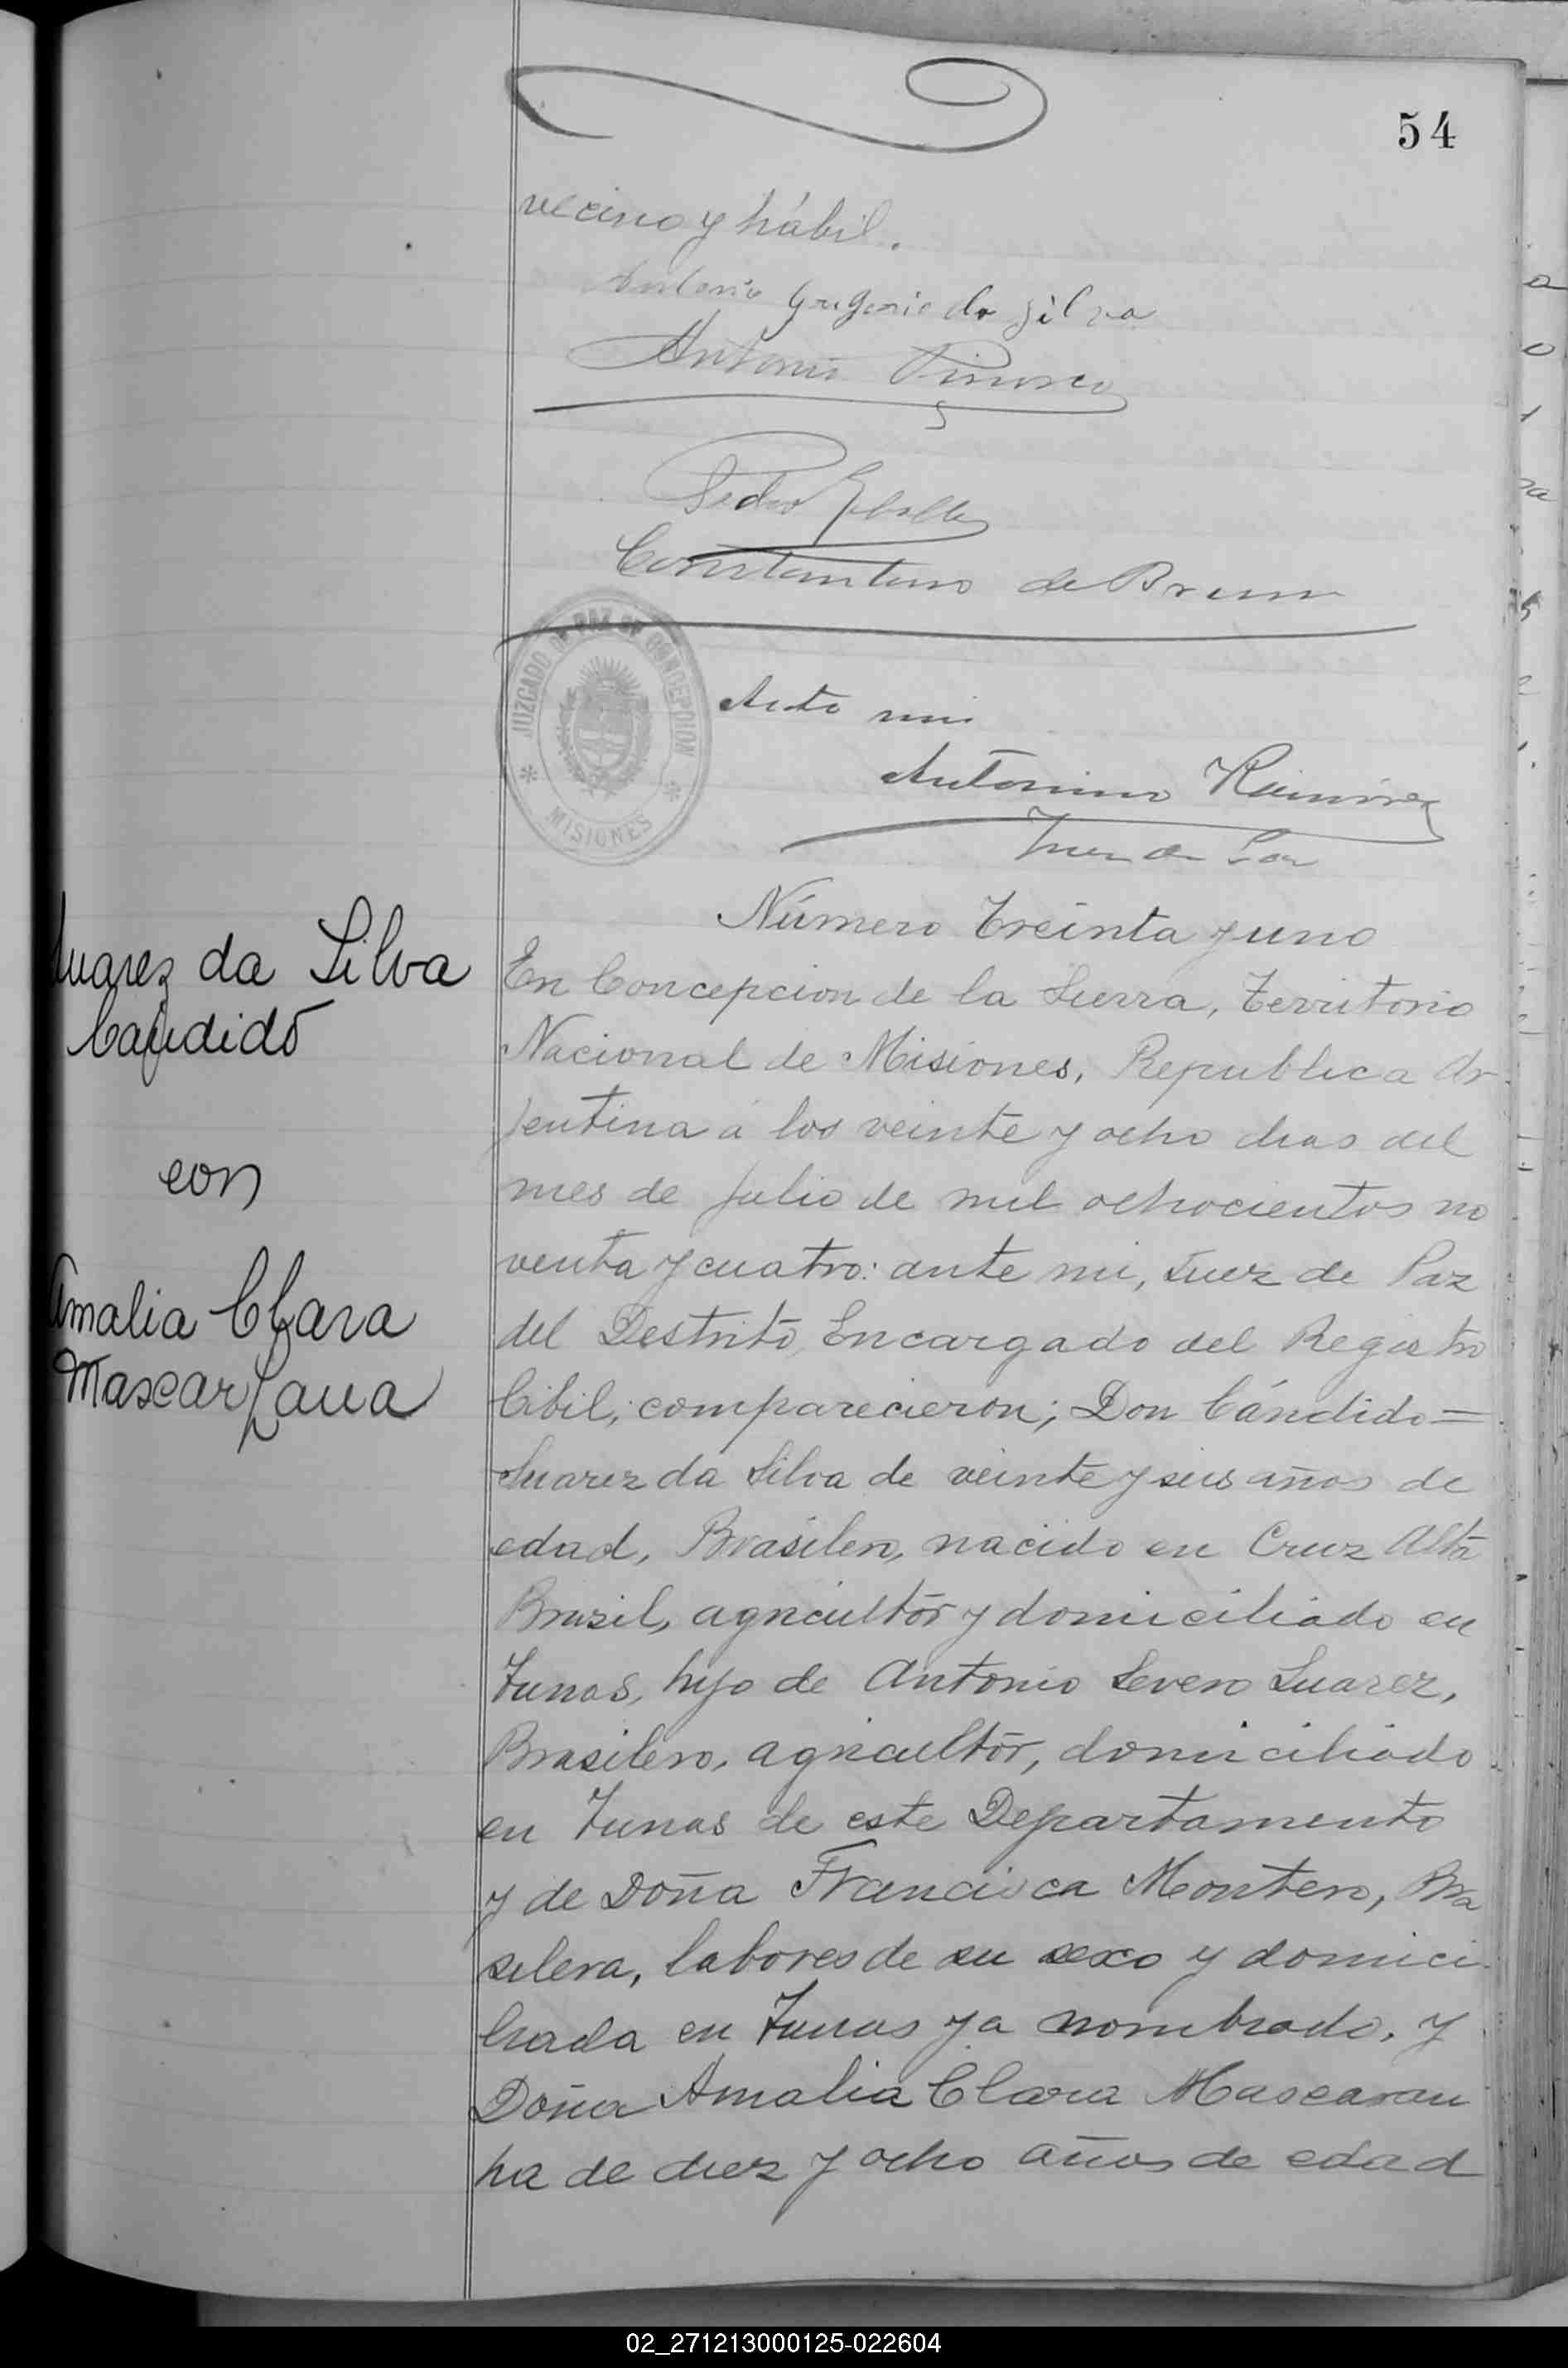 54
vecino y hábil.
Antonio Gregorio da Silva
Antonio
Pedro
Constantino de Brum
JUZGADO DE PAZ DE CONCEPCION
MISIONES
Ante mi
Antonino Ramirez
Juez de Paz
Suarez da Silva
Candido
con
Amalia Clara
Mascar
Número treinta y uno
En Concepcion de la Sierra, territorio
Nacional de Misiones, Republica Ar
jentina á los veinte y ocho dias del
mes de Julio de mil ochocientos no
venta y cuatro: ante mi, Juez de Paz
del Destrito, Encargado del Registro
Cibil; comparecieron; Don Cándido =
Suarez da Silva de veinte y seis años de
edad, Brasilero, nacido en Cruz Alta
Brazil, agricultor y domiciliado en
Tunas, hijo de Antonio Severo Suarez,
Brasilero, agricultor, domiciliado
en Tunas de este Departamento
y de Doña Francisca Montero, Bra
silera, labores de su sexo y domici
liada en Tunas ya nombrado, y
Doña Amalia Clara Mascaran
ha de diez y ocho años de edad
02_271213000125-022604